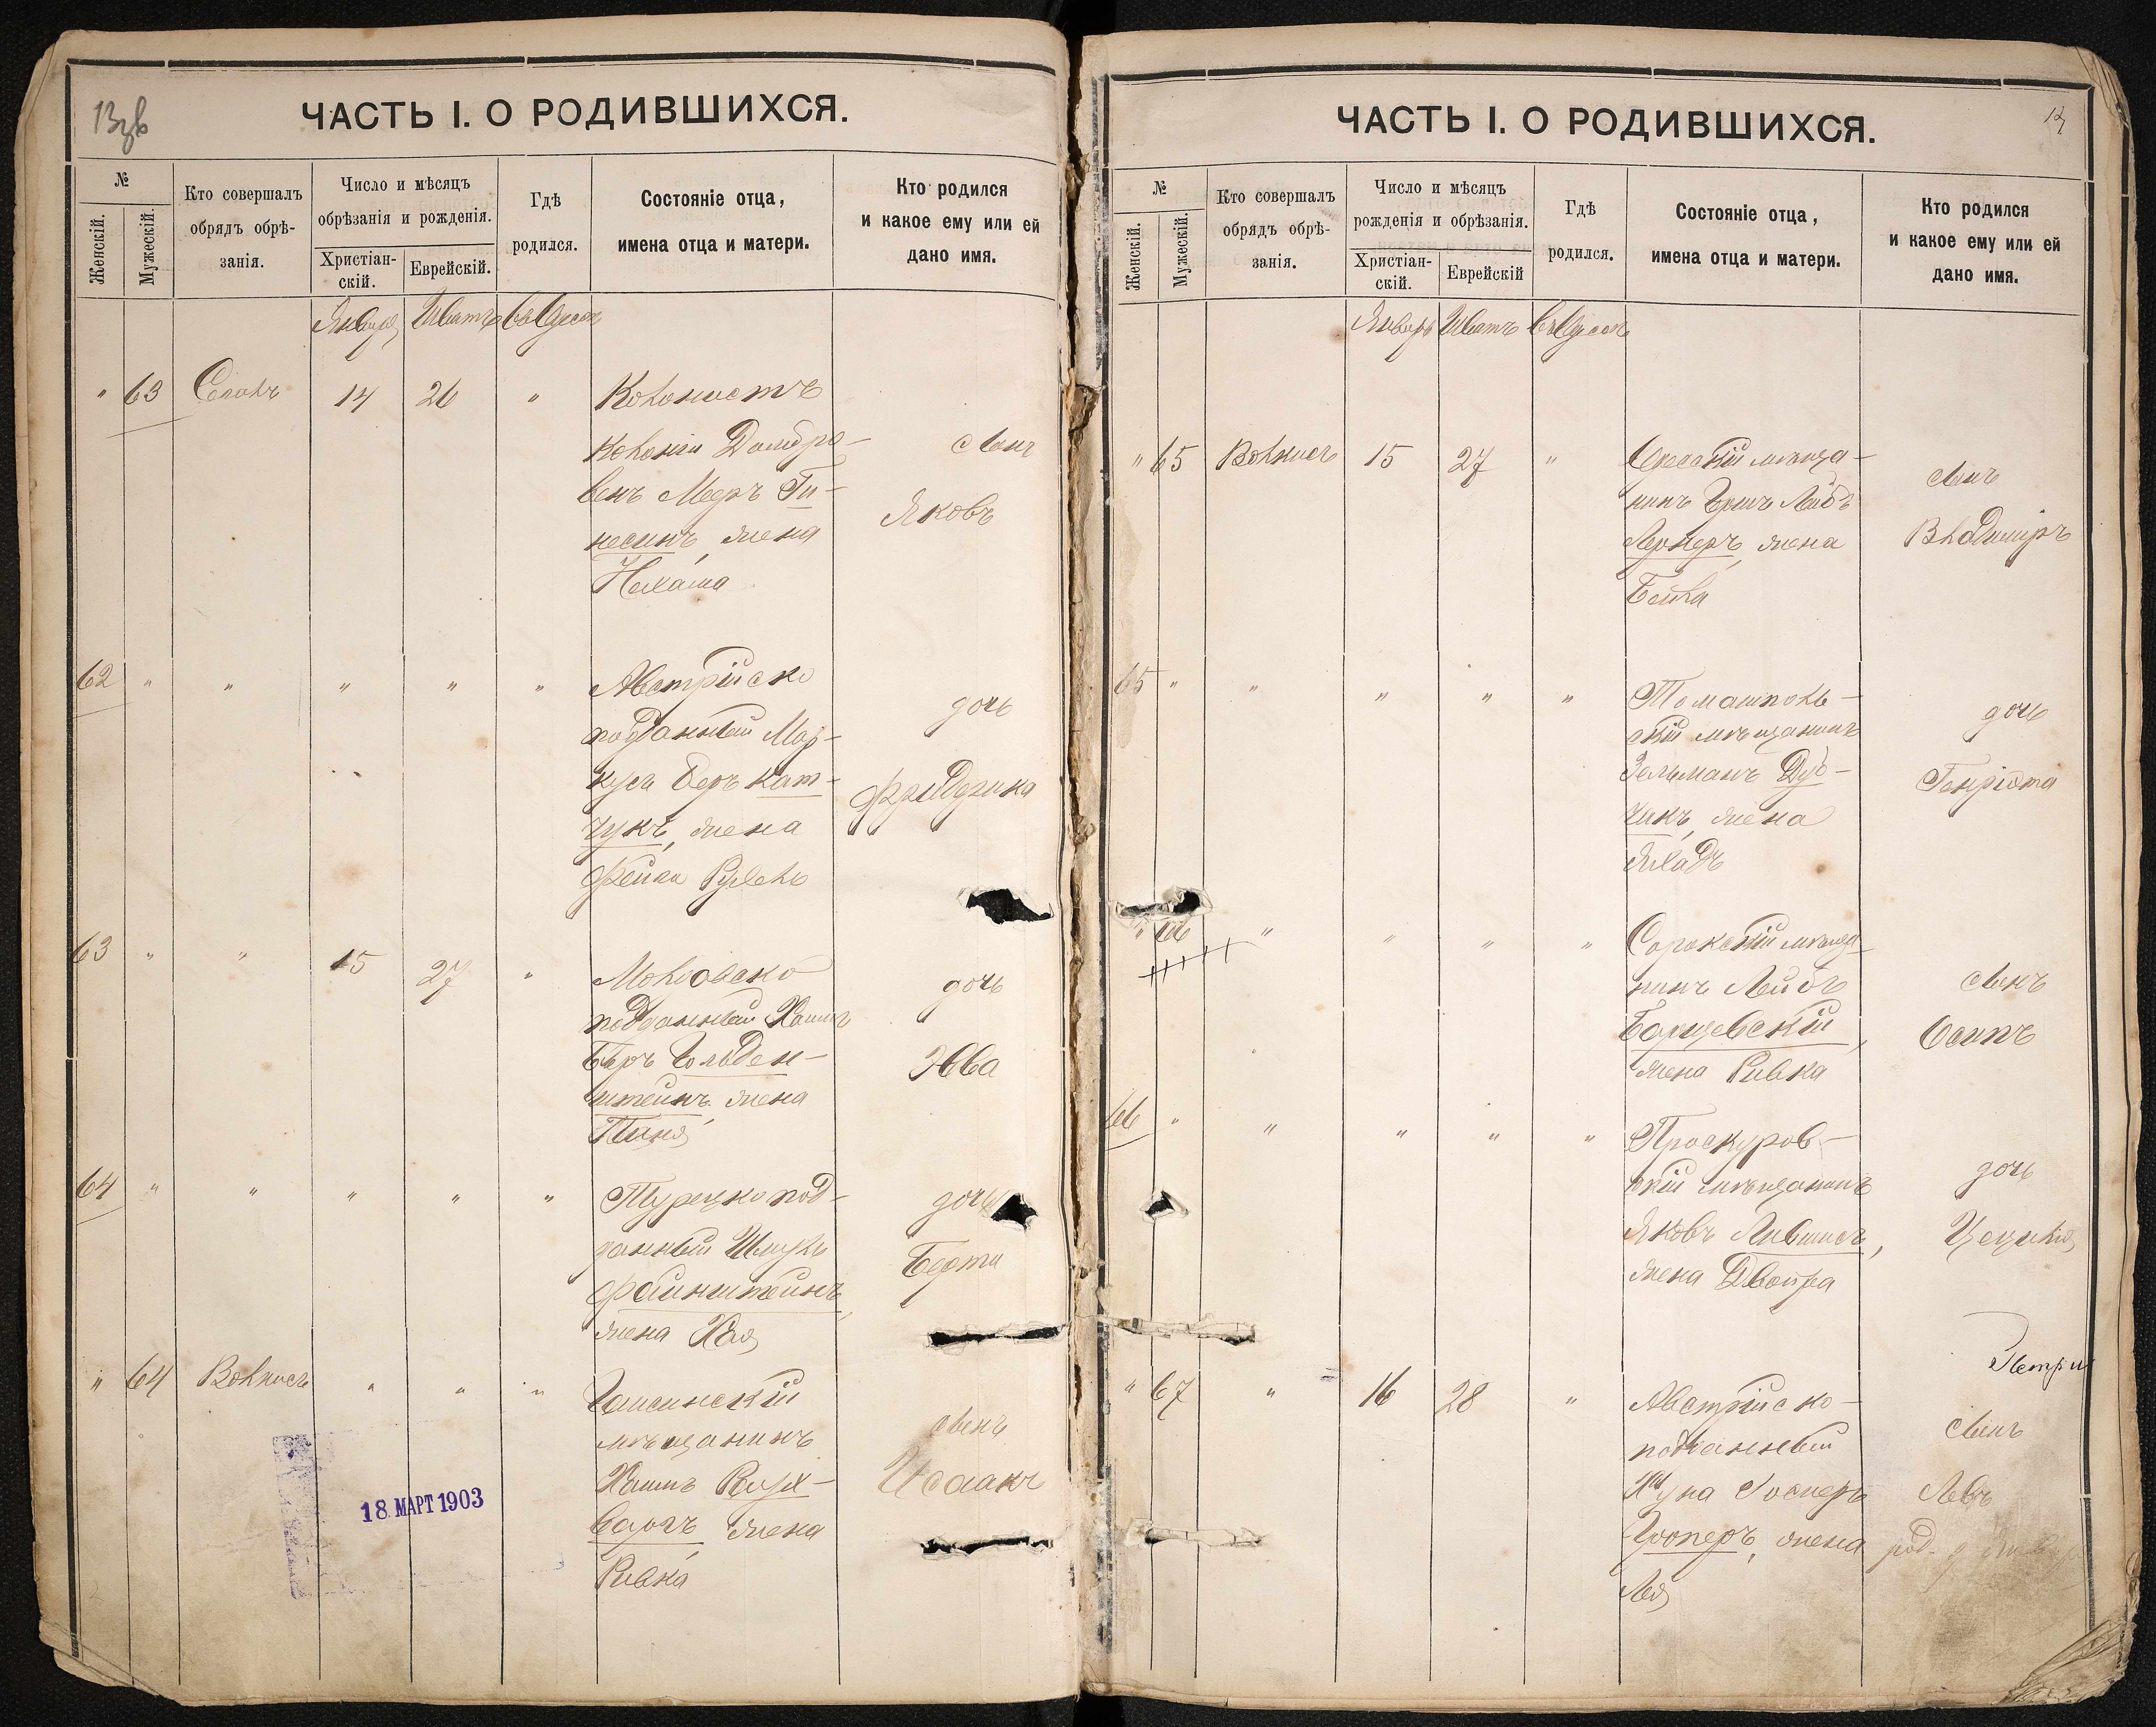 13зв
ЧАСТЬ I. О РОДИВШИХСЯ.
№
Женскій.
Мужескій.
Кто совершалъ
обрядъ обрѣ-
занія.
Число и мѣсяцъ
обрѣзанія и рожденія.
Христіан-
скій.
Еврейскій.
Гдѣ
родился.
Состояніе отца,
имена отца и матери.
Кто родился
и какое ему или ей
дано имя.
Январь Шватъ въ Одессѣ
" 63 14 26 " Колонистъ
колоніи Домбро-
венъ Меръ Ги-
несинъ, жена
Нехама
сынъ
Яковъ
62 " " " " " Австрійско
подданный Мар-
кусъ Беръ Кат-
чукъ, жена
Фейга Рухель
дочь
63 " " 15 27 " Молдовско
подданный Хаимъ
Беръ Гольден-
штейнъ, жена
дочь
Эвва
64 " " " " " Турецко под-
данный Шмуль
Файнштейнъ,
жена Хая
дочь
Берта
" 64 Вольнисъ " " " Гайсинскій
мѣщанинъ
Хаимъ Вайх-
жена
Ривка
сынъ
Исаакъ
18 МАРТ 1903
ЧАСТЬ I. О РОДИВШИХСЯ.
№
Женскій.
Мужескій.
Кто совершалъ
обрядъ обрѣ-
занія.
Число и мѣсяцъ
рожденія и обрѣзанія.
Христіан-
скій.
Еврейскій
Гдѣ
родился.
Состояніе отца,
имена отца и матери.
Кто родился
и какое ему или ей
дано имя.
Январь Шватъ въ Одессѣ
" 65 Вольнисъ 15 27 " Одесскій мѣща-
нинъ Гершъ Лейбъ
Лернеръ, жена
Бейла
сынъ
Владиміръ
65 " " " " " Томашполь-
скій мѣщанинъ
Зельманъ Дуб-
чакъ, жена
дочь
Генріета
" 66 " " " " Сорокскій мѣща-
нинъ Лейбъ
Борщевскій,
жена Ривка
сынъ
Осипъ
66 " " " " " Проскуров-
скій мѣщанинъ
Яковъ Лившисъ,
жена Двойра
дочь
Цецилія
" 67 " 16 28 " Австрійско-
подданный
жена
Лея
сынъ
Левъ